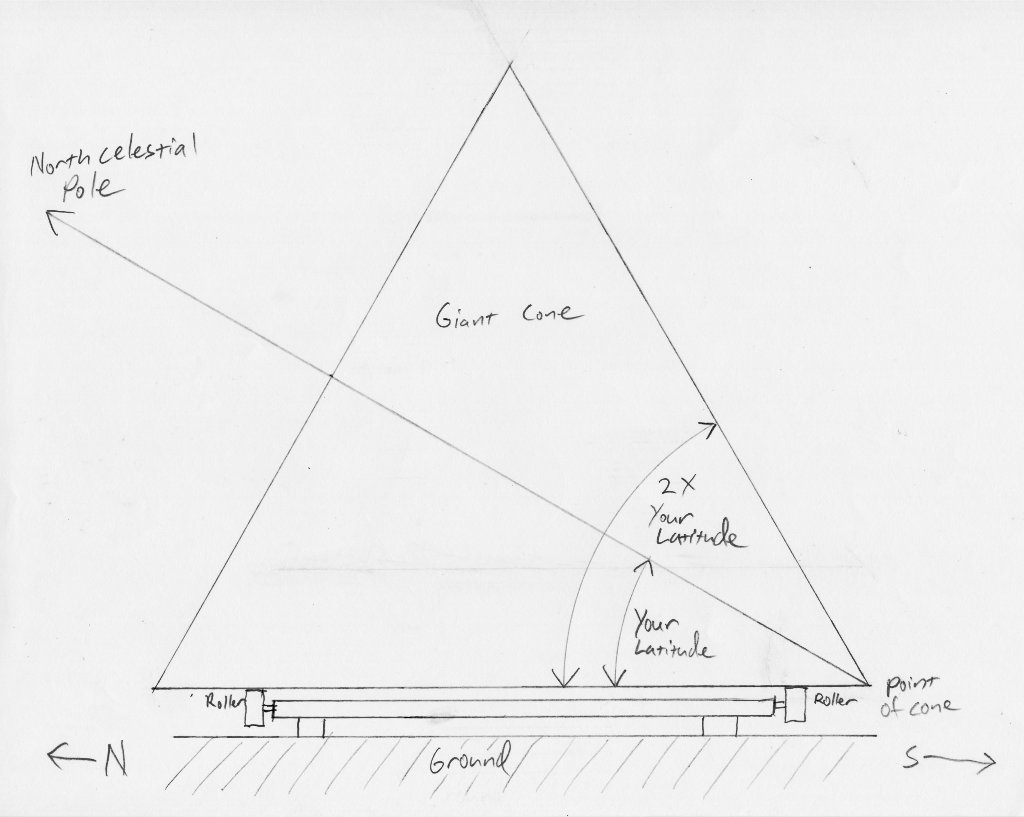 North celestial
Pole
Giant Cone
2X
Your
Latitude
Your
Latitude
Roller
Roller
point
of cone
N
Ground
S